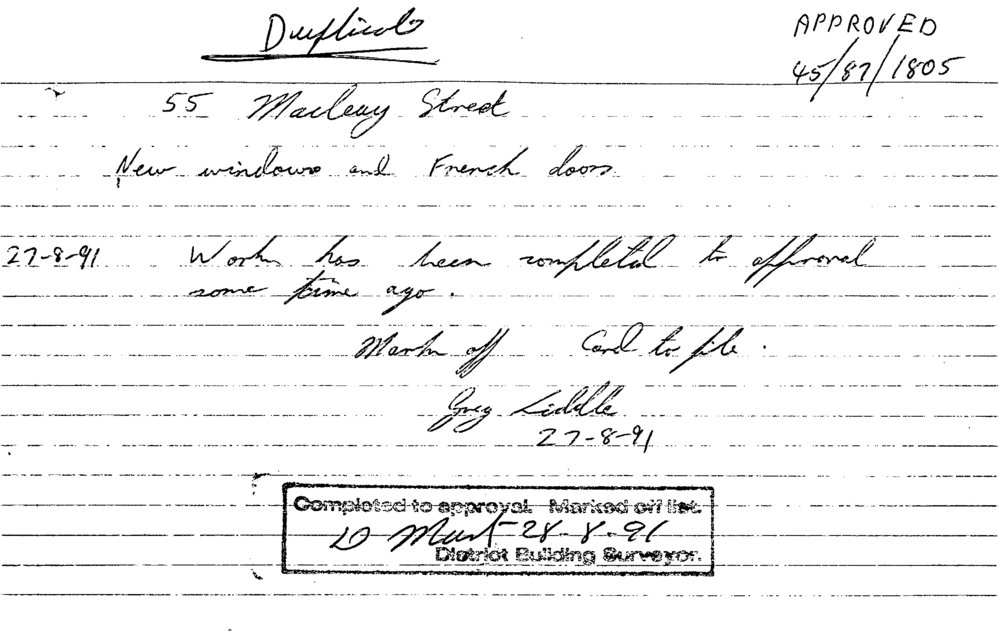 Duplicate
APPROVED
45/87/1805
55 Macleay Street
New windows and French doors
27-8-91 Work has been completed to approval
some time ago.
Mark off Card to file.
Greg Liddle
27-8-91
Completed to approval. Marked off list.
28-8-91
District Building Surveyor.